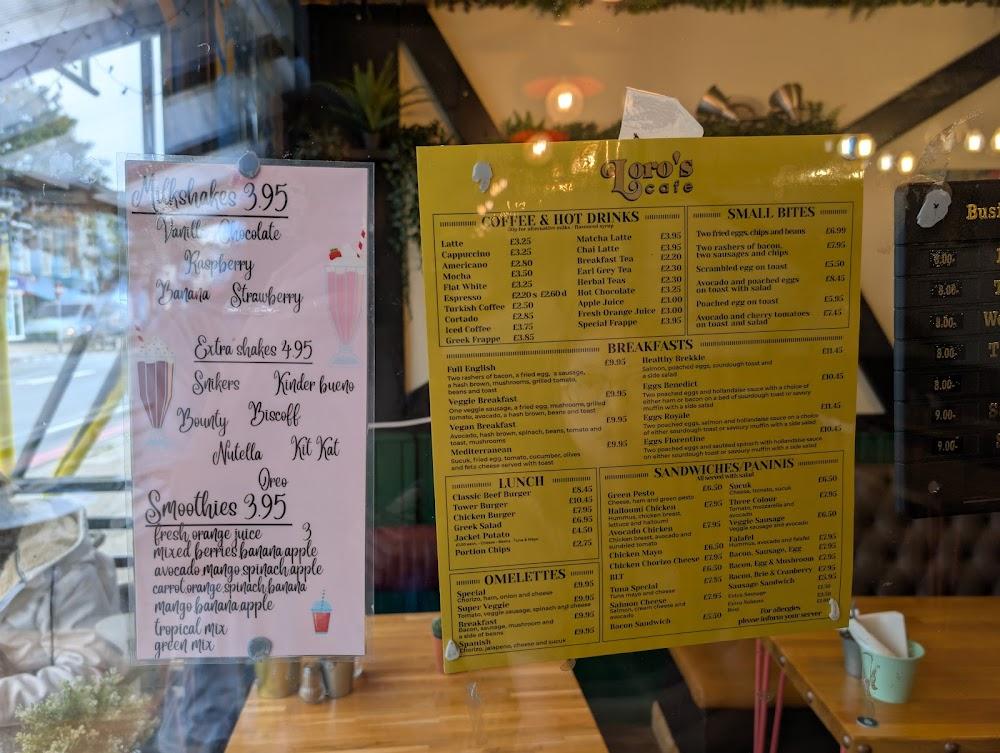 Milkshakes 3.95
Vanill Chocolate
Raspberry
Banana Strawberry
Extra shakes 4.95
Snikers Kinder bueno
Bounty Biscoff
Nutella Kit Kat
Oreo
Smoothies 3.95
fresh orange juice 3
mixed berries banana apple
avocado mango spinach apple
carrot orange spinach banana
mango banana apple
tropical mix
green mix
Loro's
cafe
COFFEE & HOT DRINKS
for alternative milks - flavoured syrup
Latte £3.25
Cappuccino £3.25
Americano £2.80
Mocha £3.50
Flat White £3.25
Espresso £2.20 s £2.60 d
Turkish Coffee £2.50
Cortado £2.85
Iced Coffee £3.75
Greek Frappe £3.85
Matcha Latte £3.95
Chai Latte £3.95
Breakfast Tea £2.20
Earl Grey Tea £2.30
Herbal Teas £2.30
Hot Chocolate £3.25
Apple Juice £3.00
Fresh Orange Juice £3.00
Special Frappe £3.95
SMALL BITES
Two fried eggs, chips and beans £6.99
Two rashers of bacon, £7.95
two sausages and chips
Scrambled egg on toast £5.50
Avocado and poached eggs £8.45
on toast with salad
Poached egg on toast £5.95
Avocado and cherry tomatoes £7.45
on toast and salad
BREAKFASTS
Full English £9.95
Two rashers of bacon, a fried egg, a sausage,
a hash brown, mushrooms, grilled tomato,
beans and toast
Veggie Breakfast £9.95
One veggie sausage, a fried egg, mushrooms, grilled
tomato, avocado, a hash brown, beans and toast
Vegan Breakfast £9.95
Avocado, hash brown, spinach, beans, tomato and
toast, mushrooms
Mediterranean £9.95
Sucuk, fried egg, tomato, cucumber, olives
and feta cheese served with toast
Healthy Brekkie £11.45
Salmon, poached eggs, sourdough toast and
a side salad
Eggs Benedict £10.45
Two poached eggs and hollandaise sauce with a choice of
either ham or bacon on a bed of sourdough toast or savoury
muffin with a side salad
Eggs Royale £11.45
Two poached eggs, salmon and hollandaise sauce on a choice
of either sourdough toast or savoury muffin with a side salad
Eggs Florentine £10.45
Two poached eggs and sautéed spinach with hollandaise sauce
on either sourdough toast or savoury muffin with a side salad
LUNCH
Classic Beef Burger £8.45
Tower Burger £10.45
Chicken Burger £7.95
Greek Salad £6.95
Jacket Potato £4.50
Cheese - Beans - Tuna & Mayo
Portion Chips £2.75
OMELETTES
Special £9.95
Chorizo, ham, onion and cheese
Super Veggie £9.95
Tomato, veggie sausage, spinach and cheese
Breakfast £9.95
Bacon, sausage, mushroom and
a side of beans
Spanish £9.95
Chorizo, jalapeno, cheese and sucuk
SANDWICHES/PANINIS
All served with salad
Green Pesto £6.50
Cheese, ham and green pesto
Halloumi Chicken £7.95
Hummus, chicken breast,
lettuce and halloumi
Avocado Chicken £7.95
Chicken breast, avocado and
sundried tomato
Chicken Mayo £6.50
Chicken Chorizo Cheese £7.95
BLT £6.50
Tuna Special £7.95
Tuna mayo and cheese
Salmon Cheese £7.95
Salmon, cream cheese and
avocado
Bacon Sandwich £5.50
Sucuk £6.50
Cheese, tomato, sucuk
Three Colour £7.95
Tomato, mozzarella and
avocado
Veggie Sausage £6.50
Veggie sausage and avocado
Falafel £7.95
Hummus, avocado and falafel
Bacon, Sausage, Egg £7.95
Bacon, Egg & Mushroom £7.95
Bacon, Brie & Cranberry £7.95
Sausage Sandwich £5.95
Extra Sausage
Extra Salami
For allergies
please inform your server
Busi
8.00-
8.00-
8.00-
8.00-
8.00-
9.00-
9.00-